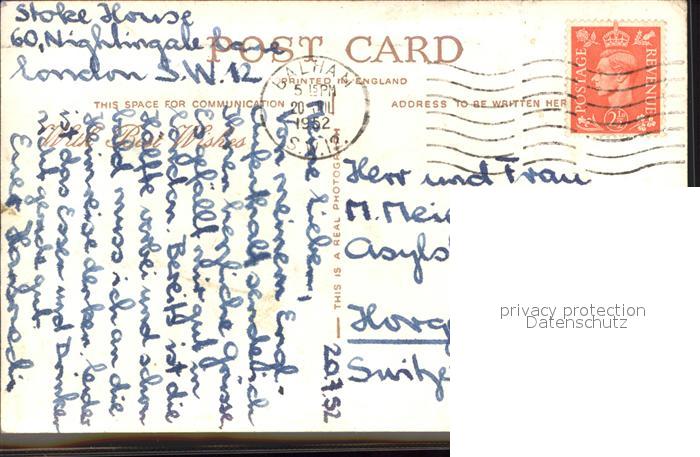 Stoke House
60, Nightingale Lane
London S.W. 12
POST CARD
PRINTED IN ENGLAND
THIS SPACE FOR COMMUNICATION
ADDRESS TO BE WRITTEN HERE
With Best Wishes
BALHAM
5 15 PM
20 JUL
1952
S.W.12.
POSTAGE REVENUE
2½
THIS IS A REAL PHOTOGRAPH
20.7.52
Meine Lieben,
Von meinem Eng-
landaufenthalt sende ich
Euch herzliche Grüsse.
Es gefällt mir gut in
London. Bereits ist die
Hälfte vorbei und schon
bald muss ich an die
Heimreise denken, leider
Das Essen und Trinken
ist gerade gut.
Euer
Herr und Frau
M. Mei
Asyls
Horg
Switze
privacy protection
Datenschutz